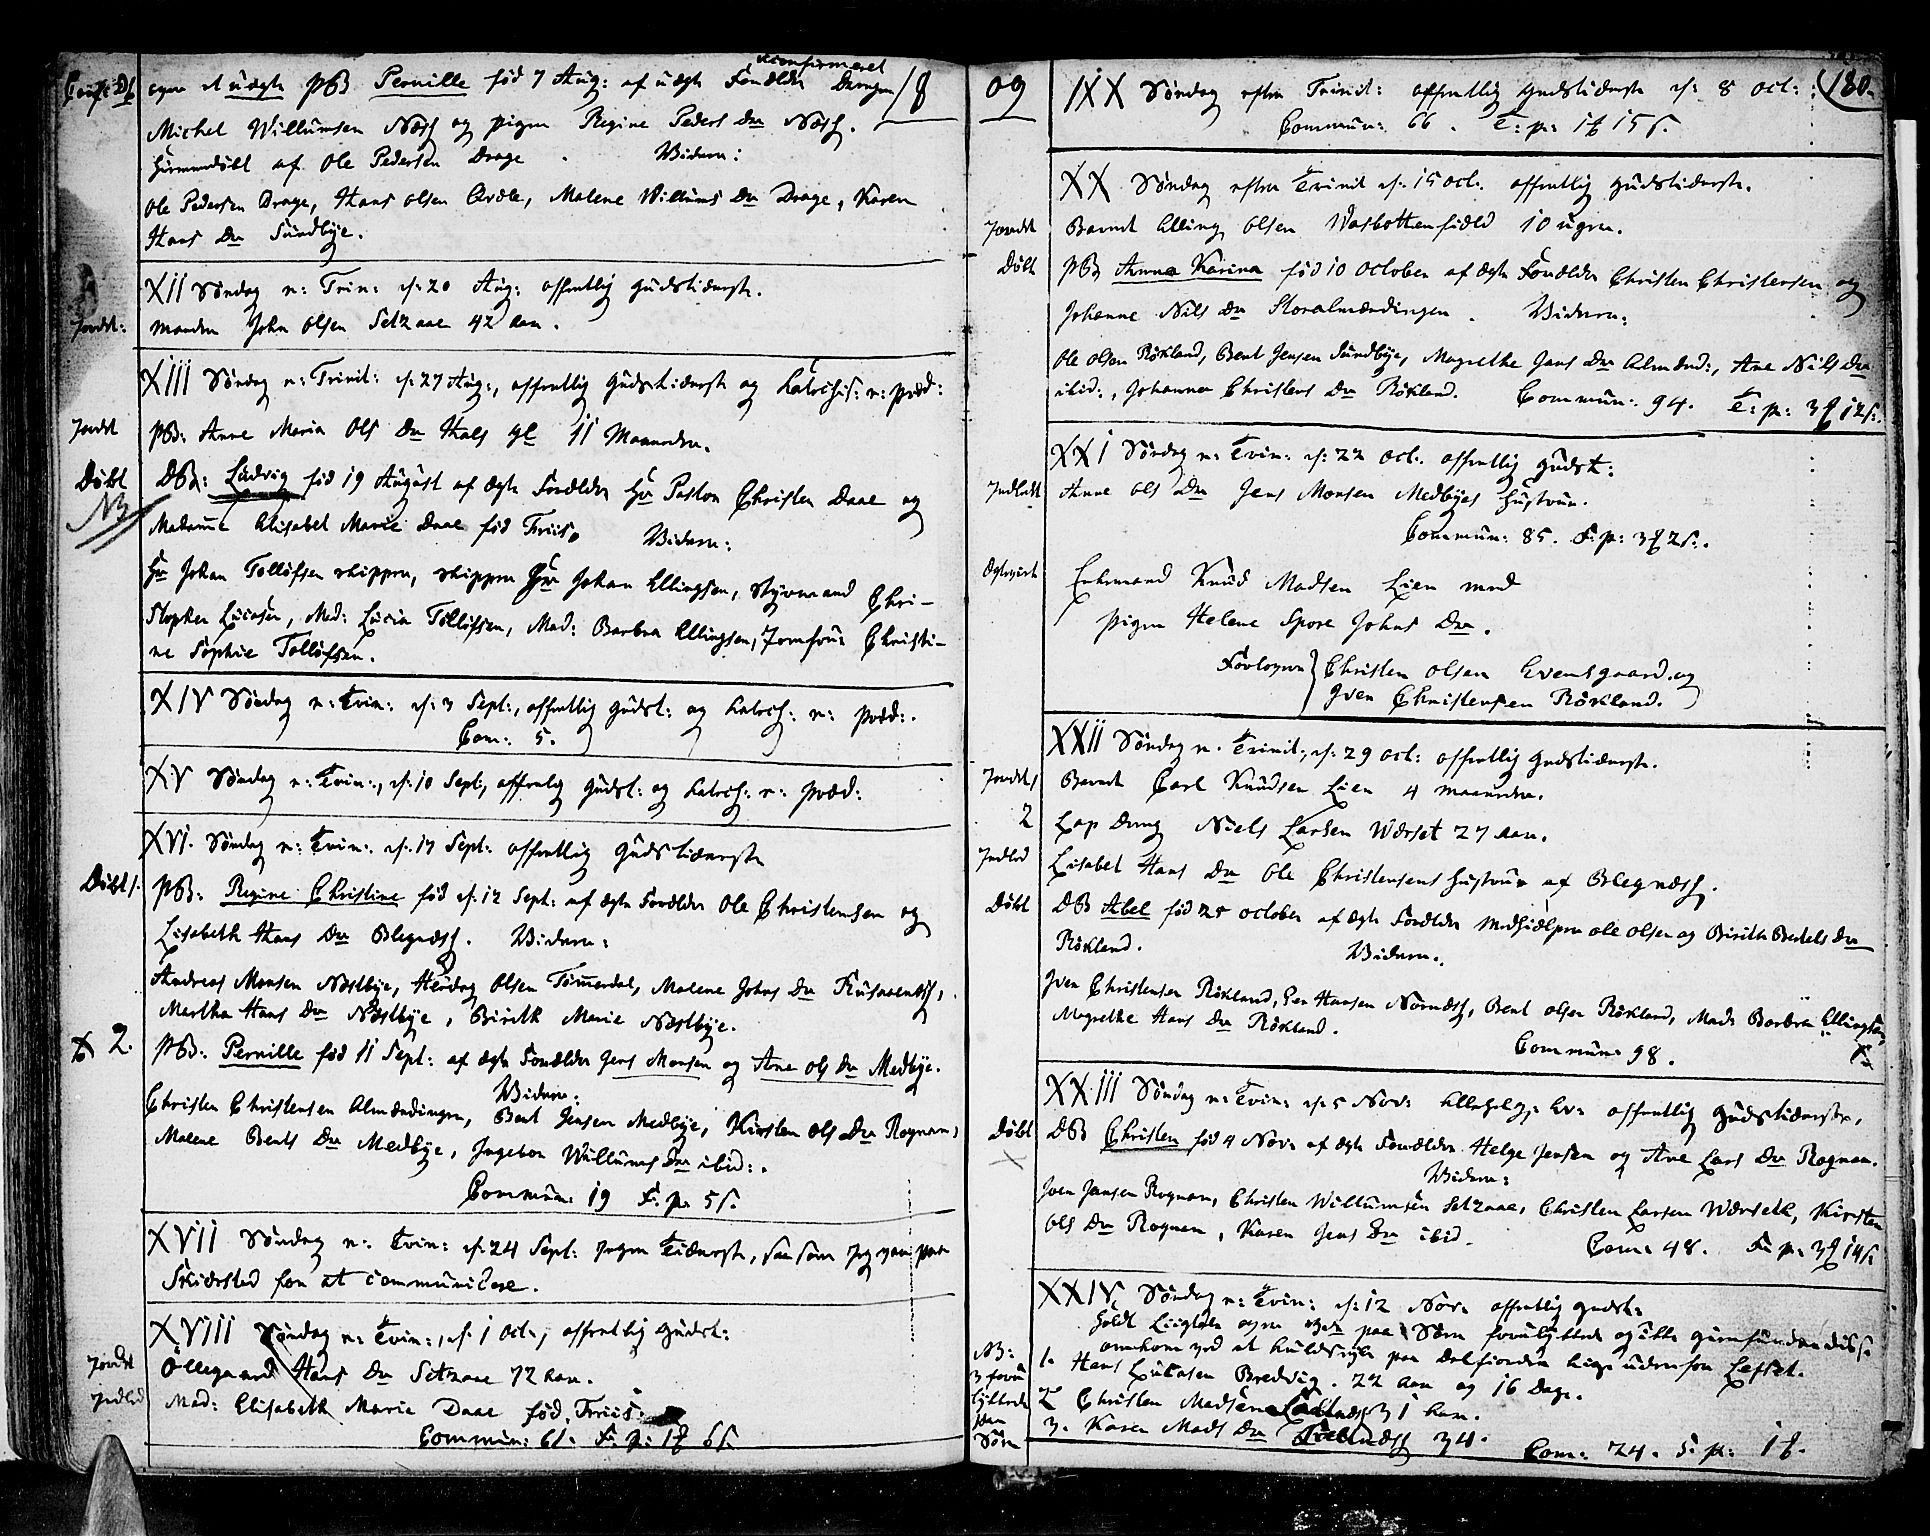 Conf: Db
egne et uægte PB Pernille fød 7 Aug: af uægte Forældre Drengen
Konfirmeret
18
Michel Willumsen Næss og pigen Regine Peders Dr Næss.
hiemmedøbt af Ole Pedersen Drage. Widnere:
Ole Pedersen Drage, Hans Olsen Qvæle, Malene Willums Dr Drage, Karen
Hans Dr Sundbye.
XII Søndag e: Trin: d: 20 Aug: offentlig Gudstieneste.
Jordet: Manden John Olsen Setzaae 42 Aar.
XIII Søndag e: Trinit: d: 27 Aug:, offentlig Gudstieneste og Catechis: e: præd:
Jordet PB: Anne Maria Ols Dr Hals gl 11 Maaneder.
Døbt DB: Ludvig fød 19 August af ægte Forældre Hr Pastor Christen Daae og
NB
Madame Elisabet Marie Daae fød Friis. Widnere:
Hr Johan Tollofsen skipper, skipper Hr Johan Ellingsen, Styrmand Chri-
stopher Lucasen, Mad: Lucia Tollofsen, Mad: Barbra Ellingsen, Jomfrue Christi-
ne Sophie Tollofsen.
XIV Søndag e: Trin: d: 3 Sept:, offentlig Gudst: og Catech: e: præd:.
Com: 5.
XV Søndag e: Trin:, d: 10 Sept, offentlig Gudst: og Catech: e: præd:
XVI. Søndag e: Trin: d: 17 Sept: offentlig Gudstieneste
Døbt 1. PB: Regine Christine fød d: 12 Sept: af ægte Forældre Ole Christensen og
Lisabeth Hans Dr Blegnæss. Widnere:
Andreas Monsen Næstbye, Hendrig Olsen Tømmerdal, Malene Johns Dr
Martha Hans Dr Næstbye, Birith Marie Næstbye.
2. PB: Pernille fød 11 Sept: af ægte Forældre Jens Monsen og Ane Ols Dr Medbye.
Widnere:
Christen Christensen Almændingen, Bent Jensen Medbye, Kirsten Ols Dr Rognan,
Malene Bents Dr Medbye, Ingebor Willums Dr ibid:.
Commun: 19 F: p: 5 s.
XVII Søndag e: Trin: d: 24 Sept: ingen Tieneste, saasom jeg var paa
Skierstad for at communicere.
XVIII Søndag e: Trin:, d: 1 Oct:, offentlig Gudst:
Jordet Ollegaard Hans Dr Setzaae 72 Aar.
Indled Mad: Elisabeth Marie Daae fød Friis.
Commun: 61. F: p: 1 6 s.
09
180.
IXX Søndag efter Trinit: offentlig Gudstieneste d: 8 Oct:
Commun: 66. T: p: 1 15 s.
XX Søndag efter Trinit d: 15 Oct: offentlig Gudstieneste.
Jordet Barnet Elling Olsen Wasbottenfield 10 uger.
Døbt PB Anna Karina fød 10 October af ægte Forældre Christen Christensen og
Johanne Nils Dr Storalmændingen. Widnere:
Ole Olsen Røkland, Bent Jensen Sundbye, Magrethe Jens Dr Almend:, Ane Nils Dr
ibid:, Johanna Christens Dr Røkland. Commun: 94. T: p: 3 12 s.
XXI Søndag e: Trin: d: 22 Oct: offentlig Gudst:
Indledt Anne Ols Dr Jens Monsen Medbyes Hustrue.
Commun: 85. F: p: 3 2 s.
Ægteviet Enkemand Knud Madsen Lien med
pigen Helene Spore Johns Dr.
Forlovere Christen Olsen Evensgaard og
Iven Christensen Røkland.
XXII Søndag e. Trinit, d: 29 Oct: offentlig Gudstieneste.
Jordet 1 Barnet Carl Knudsen Lien 4 Maaneder.
2 Lap Dreng Niels Larsen Wærset 27 Aar.
Indled Lisabet Hans Dr Ole Christensens Hustrue af Blegnæss.
Døbt DB Abel fød 25 October af ægte Forældre Medhielper Ole Olsen og Birith Bertels Dr
Røkland. Widnere:
Iven Christensen Røkland, Hansen Nornæss, Bent Olsen Røkland, Mad: Barbra Ellingsen,
Magrethe Hans Dr Røkland.
Commun: 98.
XXIII Søndag e: Trin: d: 5 Nov: Allehelg: Ev: offentlig Gudstieneste.
Døbt DB Christen fød 4 Nov: af ægte Forældre Helge Jensen og Ane Lars Dr Rognan.
Widnere:
Iven Jensen Rognan, Christen Willumsen Setzaae, Christen Larsen Wærseth, Kirsten
Ols Dr Rognan, Karen Jens Dr ibid. Com: 48. F: p: 3 14 s.
XXIV Søndag e: Trin: d: 12 Nov: offentlig Gudst:
holdt Liigtale over paa Søen forulykkede og ikke gienfundne disse
omkom ved at kuldseyle paa Dalfiorden lige uden for Leffset.
NB:
3 foru
lykkede
paa
Søen
1. Hans Lucasen Bredvig. 22 Aar og 16 Dage.
2 Christen Madsen 31 Aar.
3. Karen Mads Dr 34.
Com: 74. F: p: 1